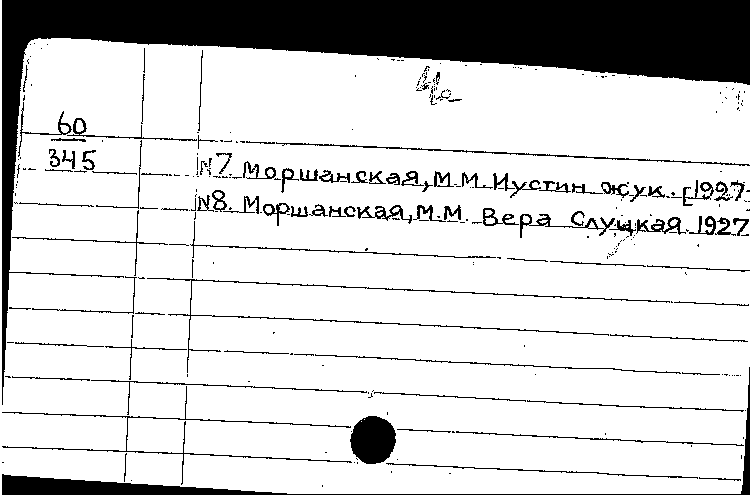 60
345
N7 Моршанская, М.М. Иустин жук. [1927
N8. Моршанская, М.М. Вера Слуцкая. 1927